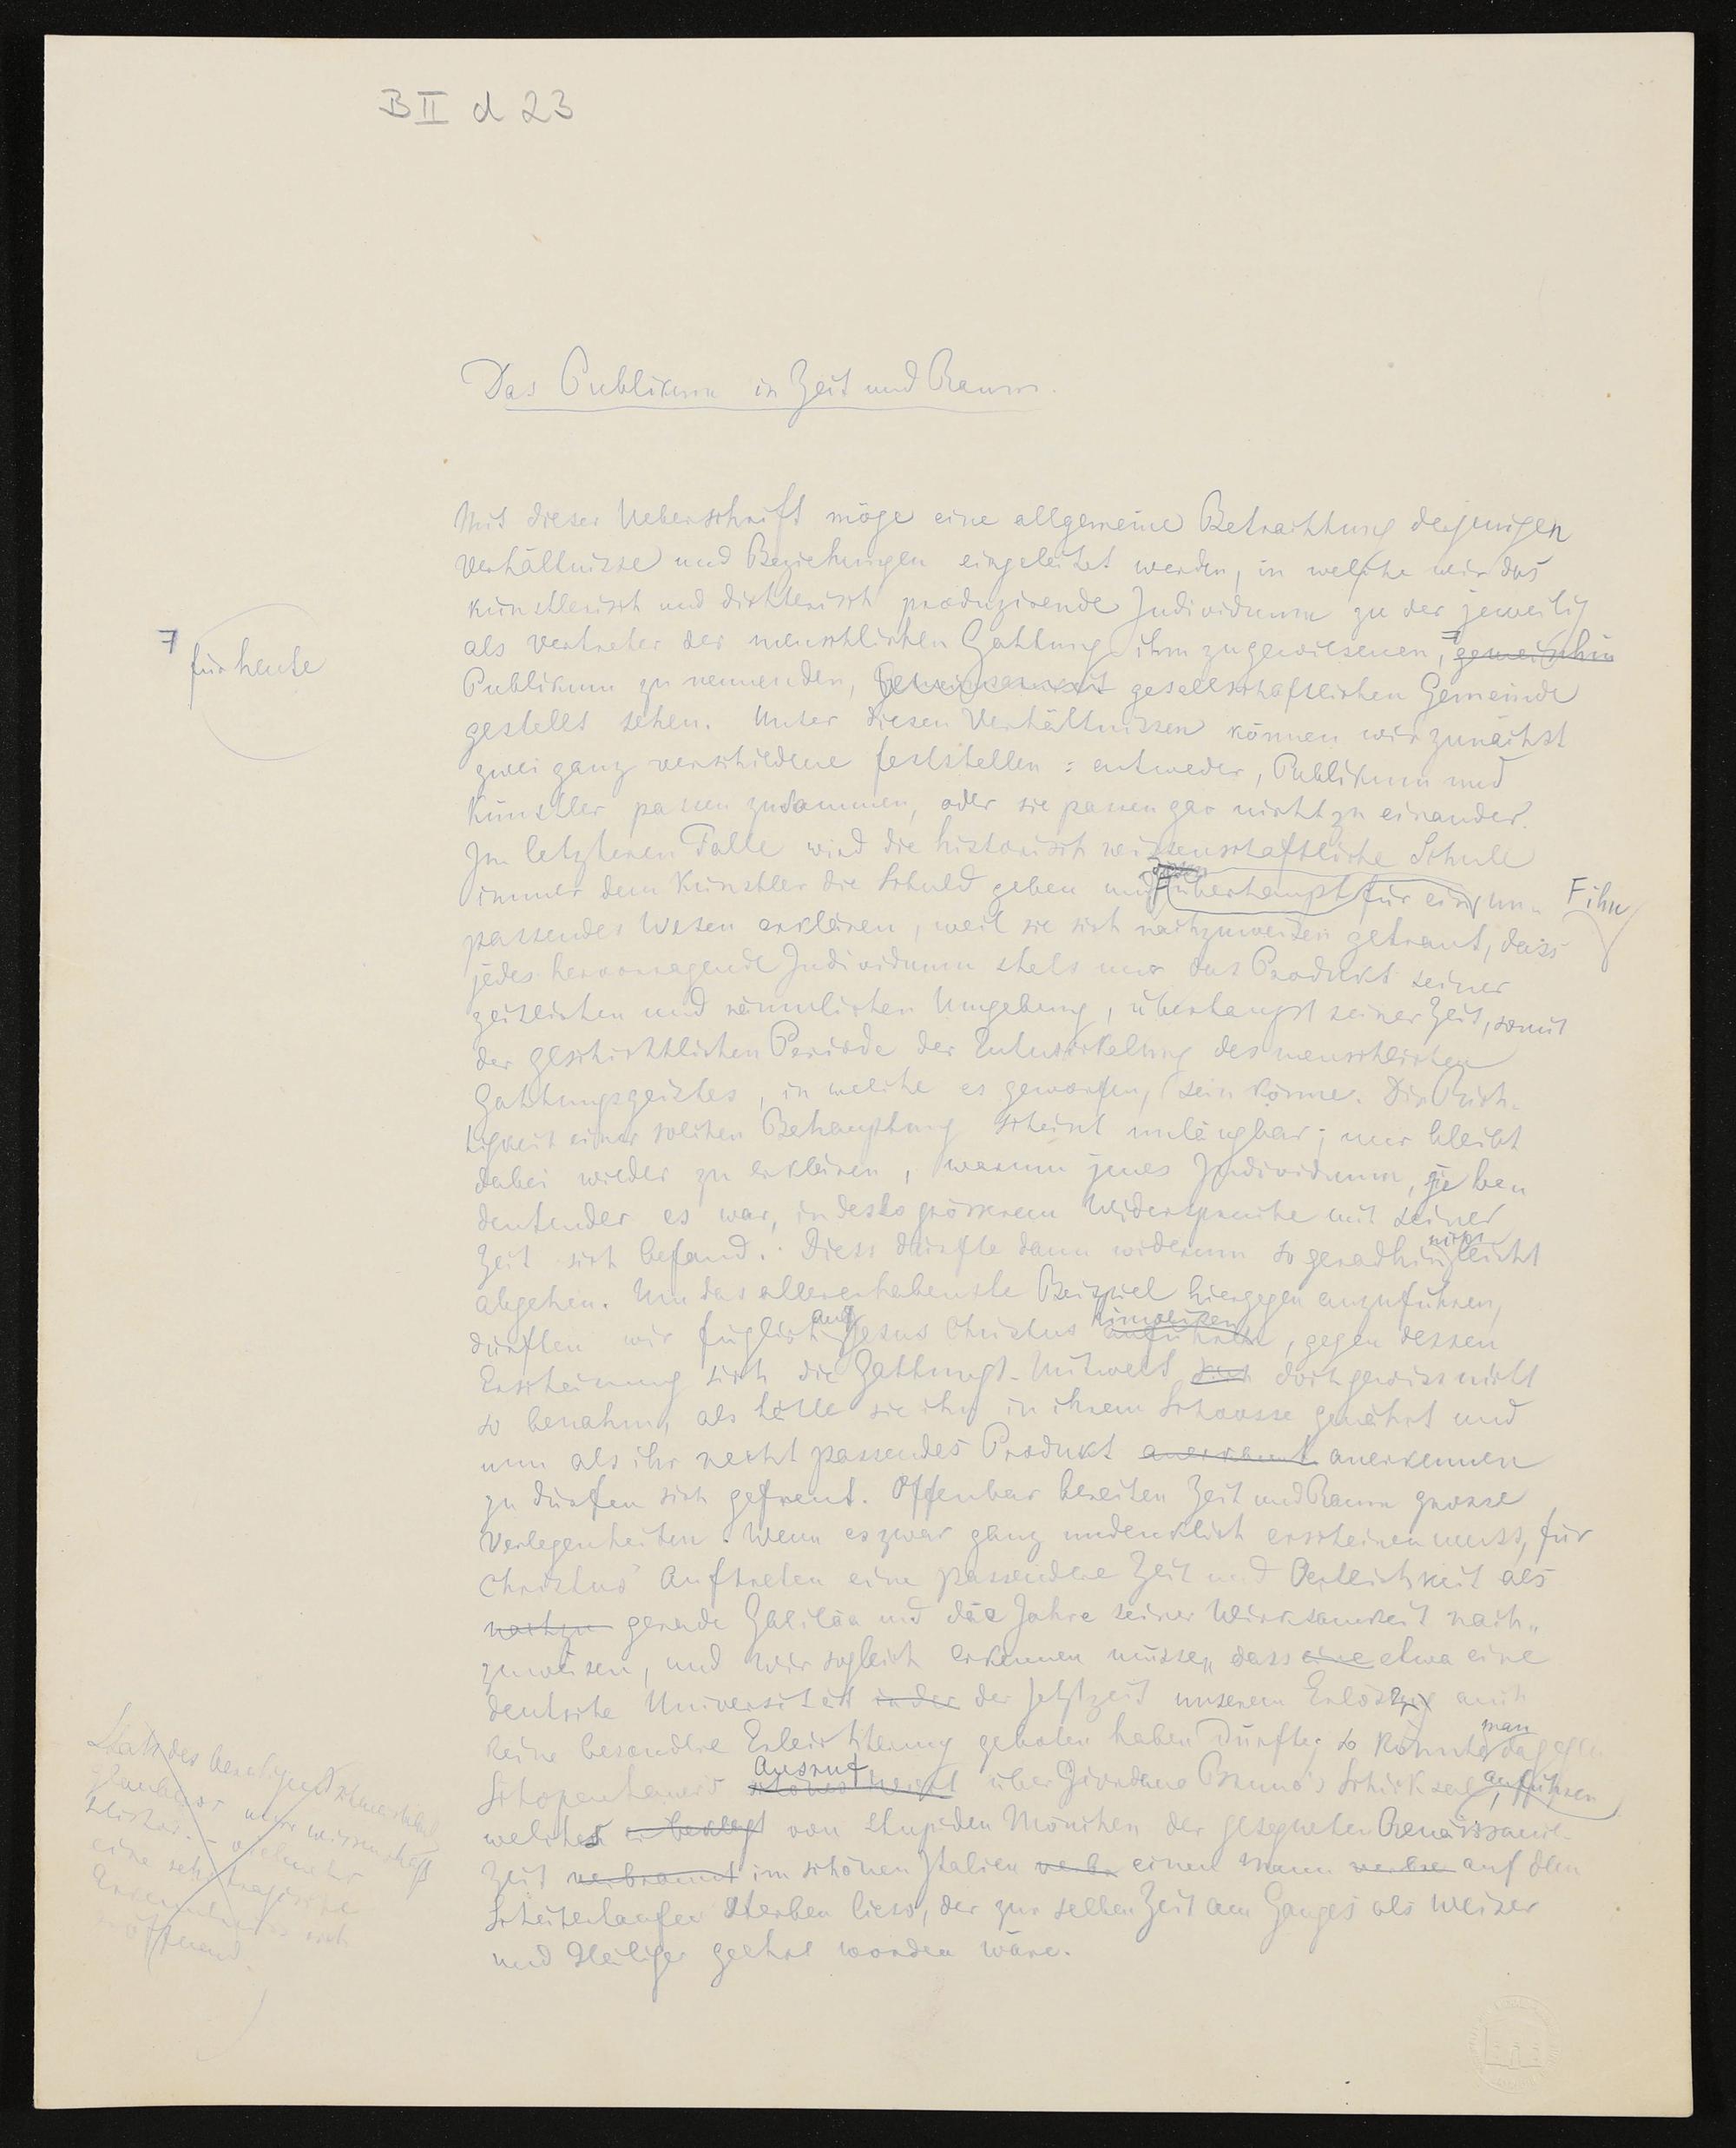 B II d 23
Das Publikum in Zeit und Raum.
Mit dieser Ueberschrift möge eine allgemeine Betrachtung derjenigen
Verhältnisse und Beziehungen eingeleitet werden, in welche wir das
künstlerisch und dichterisch produzirende Individuum zu der jeweilig
als Vertreter der menschlichen Gattung ihm zugewiesenen, gemeinhin
für heute
Publikum zu nennenden, gesellschaftlichen Gemeinde
gestellt sehen. Unter diesen Verhältnissen können wir zunächst
zwei ganz verschiedene feststellen: entweder, Publikum und
Künstler passen zusammen, oder sie passen gar nicht zu einander.
Im letzteren Falle wird die historisch wissenschaftliche Schule
immer dem Künstler die Schuld geben und überhaupt für ein un-
F ihn
passendes Wesen erklären, weil sie sich nachzuweisen getraut, dass
jedes hervorragende Individuum stets nur das Produkt seiner
zeitlichen und räumlichen Umgebung, überhaupt seiner Zeit, somit
der geschichtlichen Periode der Entwickelung des menschlichen
Gattungsgeistes, in welche es geworfen, sein könne. Die Rich-
tigkeit einer solchen Behauptung scheint unläugbar; nur bleibt
dabei wieder zu erklären, warum jenes Individuum, je be„
deutender es war, in desto grösserem Widerspruche mit seiner
Zeit sich befand. Diess dürfte dann wiederum so geradhin nicht leicht
abgehen. Um das allererhabenste Beispiel hiergegen anzuführen,
dürften wir füglich auf Jesus Christus anführen hinweisen, gegen dessen
Erscheinung sich die Gattungs-Mitwelt sich doch gewiss nicht
so benahm, als hätte sie ihn in ihrem Schoosse genährt und
nun als ihr recht passendes Produkt anerkannt anerkennen
zu dürfen sich gefreut. Offenbar bereiten Zeit und Raum grosse
Verlegenheiten. Wenn es zwar ganz undenklich erscheinen muss, für
Christus' Auftreten eine passendere Zeit und Oertlichkeit als
nachzu gerade Galiläa und die Jahre seiner Wirksamkeit nach„
zuweisen, und wir sogleich erkennen müssen, dass eine etwa eine
deutsche Universität in der der Jetztzeit unserem Erlöser auch
keine besondere Erleichterung geboten haben dürfte, so könnte man dagegen
Schopenhauer's Ausruf über Giordano Bruno's Schicksal anführen,
welches er beklagt von stupiden Mönchen der gesegneten Renaissance-
Zeit verbrannt im schönen Italien verbr einen Mann verbre auf dem
Scheiterhaufen sterben liess, der zur selben Zeit am Ganges als Weiser
und Heiliger geehrt worden wäre.
Statt des
wissenschaft
eine sehr tragische